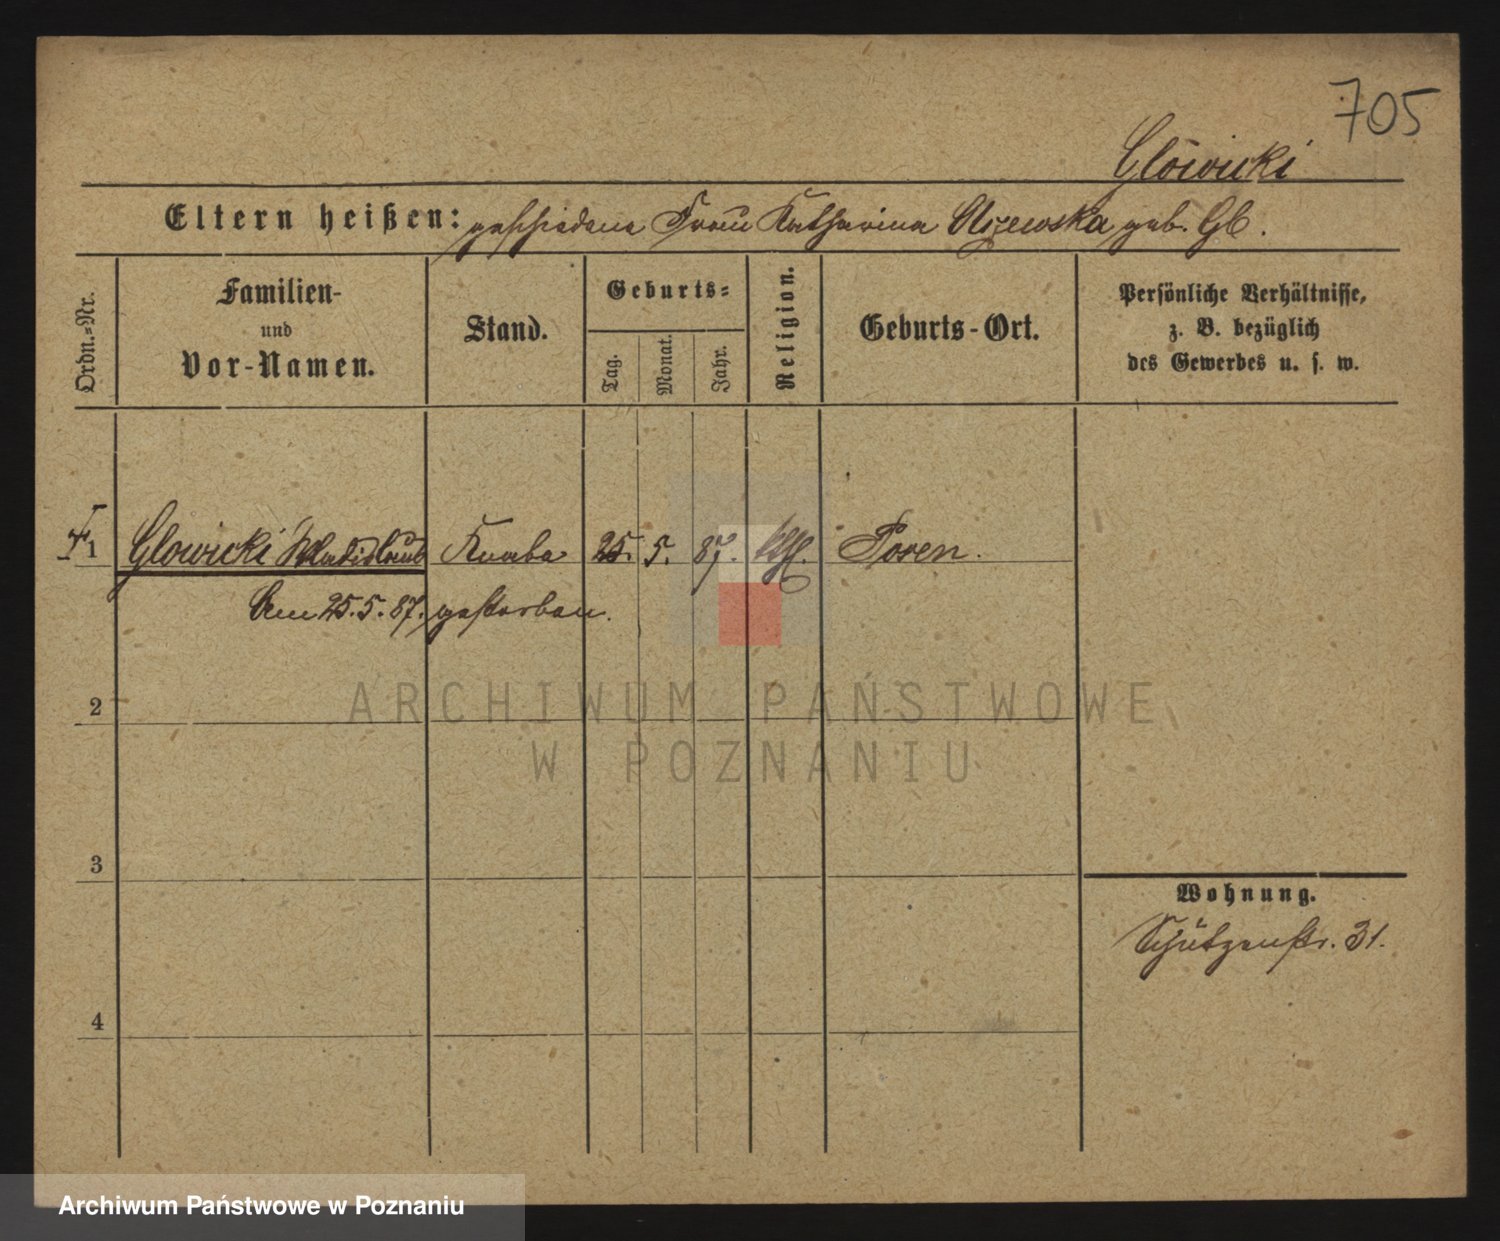 705
Glowicki
Eltern heißen: geschiedene Frau Katharina geb. Gl.
Ordn.-Nr.
Familien-
und
Vor-Namen.
Stand.
Geburts-
Tag.
Monat.
Jahr.
Religion.
Geburts-Ort.
Persönliche Verhältnisse,
z. B. bezüglich
des Gewerbes u. s. w.
1 Glowicki Wladislaus Knabe 25. 5. 87. kth. Posen.
Am 25.5.87. gestorben.
2
ARCHIWUM PAŃSTWOWE
W POZNANIU
3
Wohnung.
Schützenstr. 31.
4
Archiwum Państwowe w Poznaniu